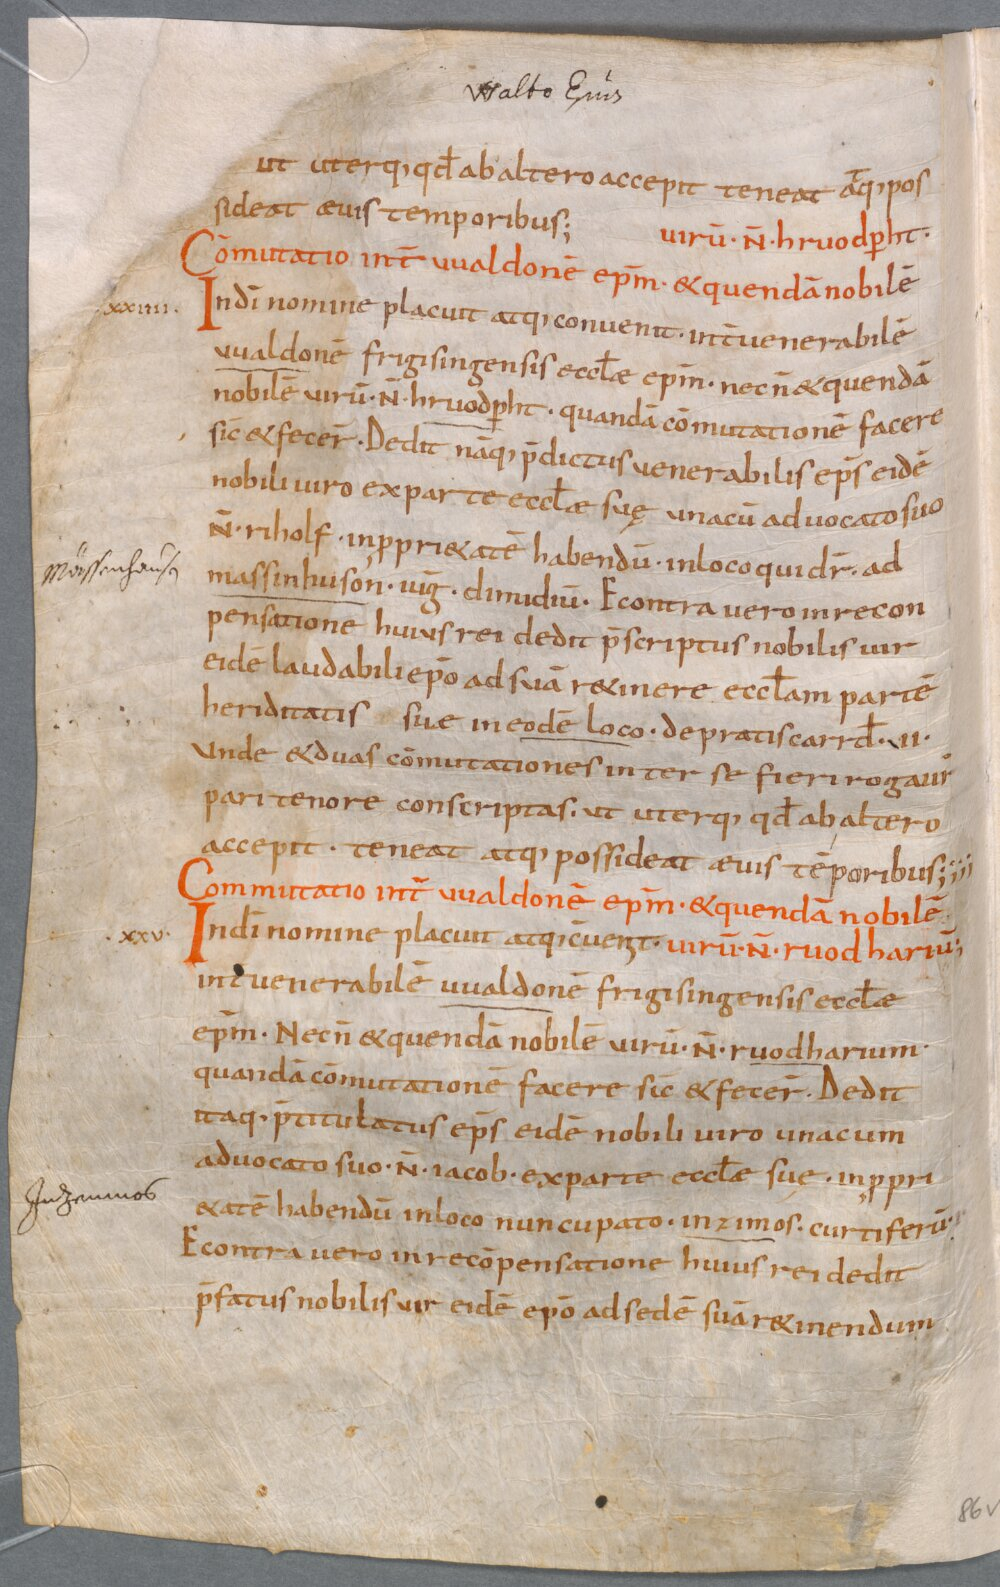 Walto Ep̄us
ut uterq; qd̄ ab altero accepit teneat atq; pos
sideat ævis temporibus;
virū· N̄· hruodp̄ht·
Cōmutatio int̄ uualdonē ep̄m· & quendā nobilē
·xxiiii·
In dī nomine placuit atq; convenit· int̄ venerabilē
uualdonē frigisingensis eccl̄æ ep̄m· necn̄ & quendā
nobilē virū· N̄· hruodp̄ht· quandā cōmutationē facere
sic̄ & fecer̄· Dedit nāq; p̄dictus venerabilis ep̄s eidē
nobili viro ex parte eccl̄æ suę una cū advocato suo
N̄· riholf· in ppri&atē habendū· in loco qui dr̄· ad
massinhuson· iug̃· dimidiū· Econtra vero in recon
pensatione huius rei dedit p̄scriptus nobilis vir
eidē laudabili ep̄o ad suā r&inere eccl̄am partē
heriditatis sue in eodē loco· de pratis carrd̄· vii·
Unde & duas cōmutationes inter se fieri rogaur̄
pari tenore conscriptas· ut uterq; qd̄ ab altero
accepit· teneat atq; possideat ævis tēporibus;
Commutatio int̄ uualdonē ep̄m· & quendā nobilē
·xxv·
In dī nomine placuit atq; cv̄enit· virū· N̄· ruodhariū;
int̄ venerabilē uualdonē frigisingensis eccl̄æ
ep̄m· Necn̄ & quendā nobilē virū· N̄· ruodharium·
quandā cōmutationē facere sic̄ & fecer̄· Dedit
itaq; p̄titulatus ep̄s eidē nobili viro una cum
advocato suo· N̄· iacob· ex parte eccl̄æ suę· in ppri
&atē habendū in loco nuncupato· in zimos· curtiferū·
Econtra vero in recōpensatione huius rei dedit
p̄fatus nobilis vir eidē ep̄o ad sedē suā r&inendum
86v